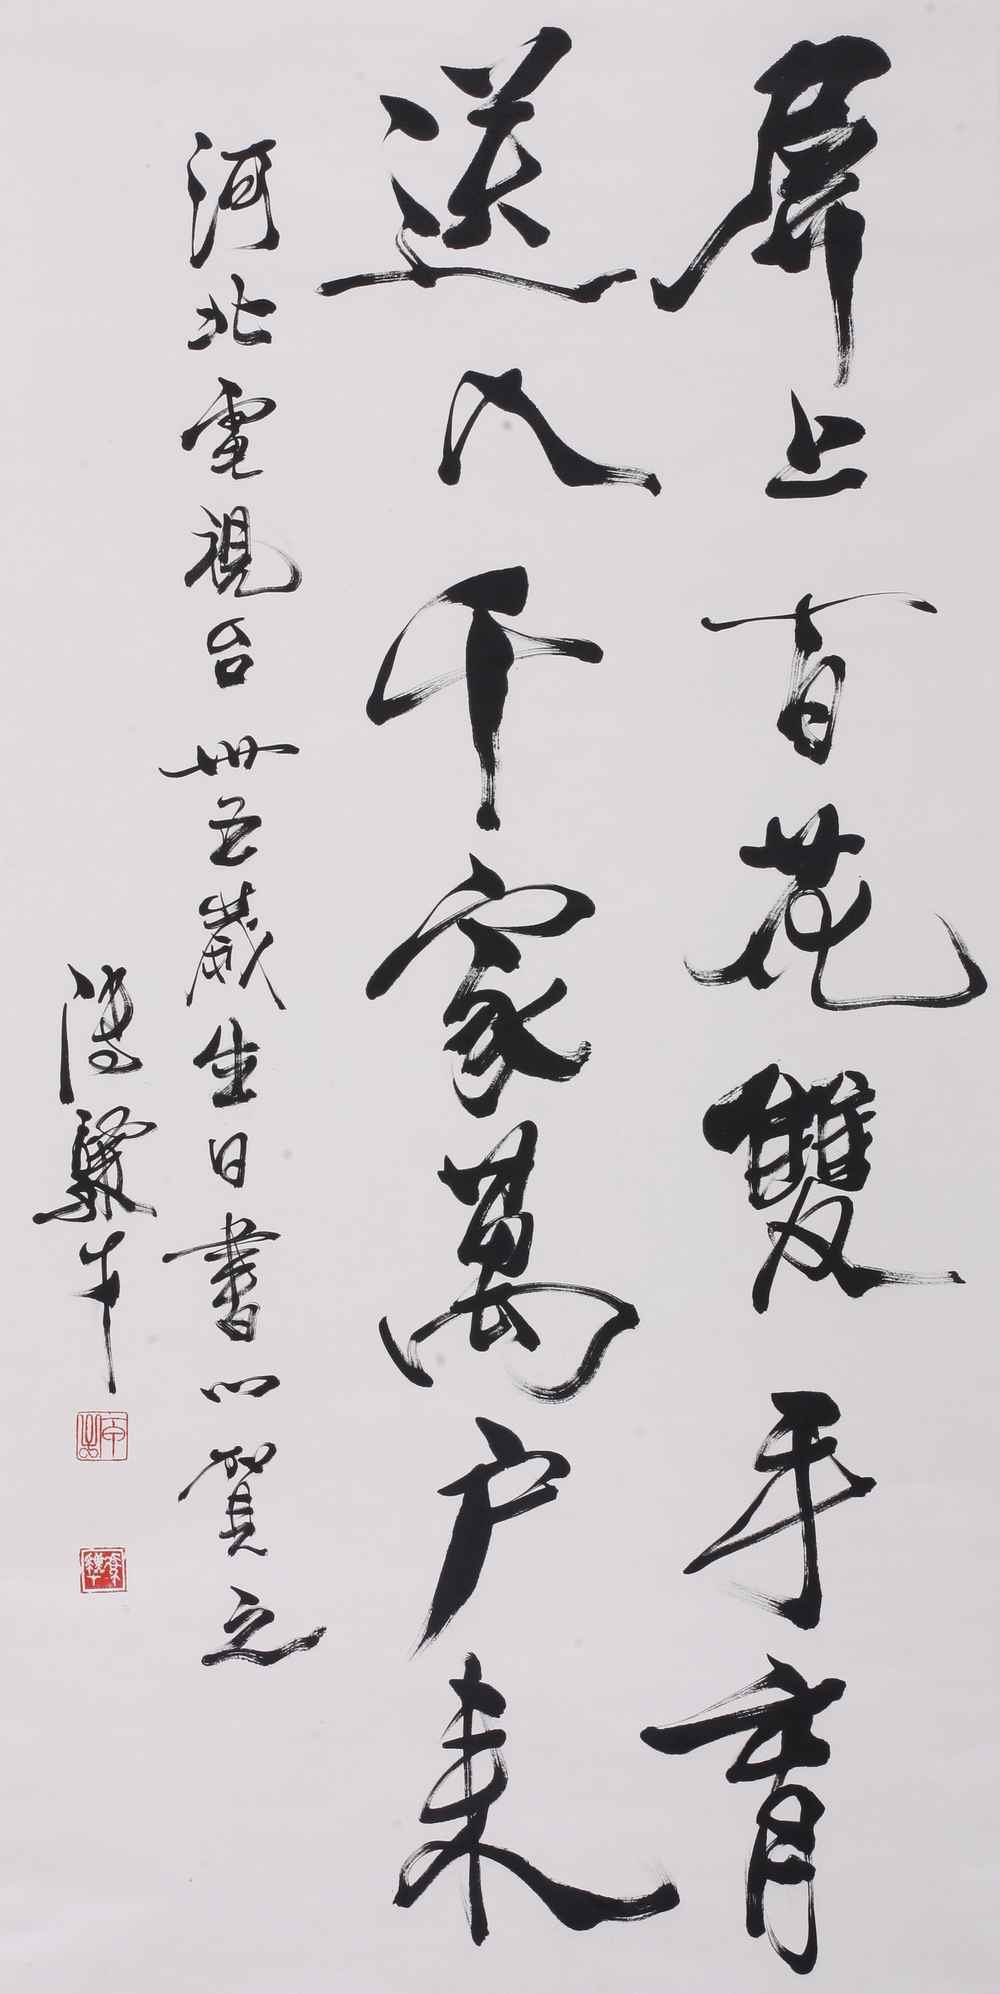 屏上百花雙手育
送入千家萬户来
河北電視台卌五歲生日書以賀之